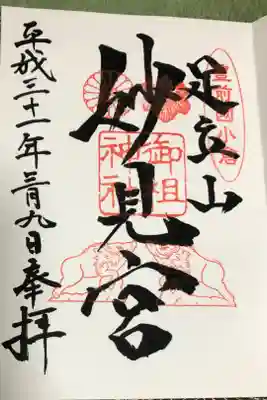 豊前国小倉
足立山
妙見宮
御祖神社
平成三十一年三月九日奉拝